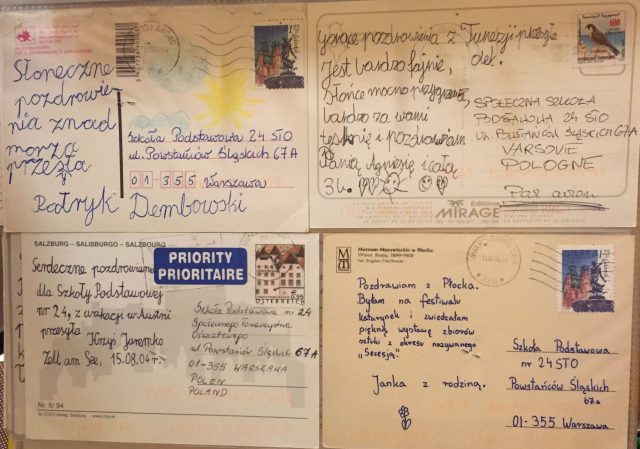 Słoneczne
pozdrowie
nia znad
morza
przesła
Patryk Dembowski
Szkoła Podstawowa 24 STO
ul. Powstańców Śląskich 67A
01-355 Warszawa
Gorące pozdrowienia z Tunezji przesyła
Jest bardzo fajnie, Olek.
Słońce mocno przygrzewa,
bardzo za wami
tęsknię i pozdrawiam
Panią Agnieszę i całą
3c.
SPOŁECZNA SZKOŁA
PODSTAWOWA 24 STO
UL. POWSTAŃCÓW ŚLĄSKICH 67A
VARSOVIE
POLOGNE
Par avion
Editions
MIRAGE
600
SALZBURG – SALISBURGO – SALZBOURG
PRIORITY
PRIORITAIRE
ÖSTERREICH
0,55
Serdeczne pozdrowienia
dla Szkoły Podstawowej
nr 24, z wakacji w Austrii
przesyła Krzyś Jaremko
Zell am See, 15.08.04r.
Szkoła Podstawowa nr 24
Społecznego Towarzystwa
Oświatowego
ul. Powstańców Śląskich 67A
01-355 WARSZAWA
POLEN
POLAND
Nr. 5/94
Muzeum Mazowieckie w Płocku
Pozdrawiam z Płocka.
Byłam na festiwalu
katarynek i zwiedzałam
piękną wystawę zbiorów
sztuki z okresu nazywanego
„Secesja”
Janka z rodziną.
Szkoła Podstawowa
nr 24 STO
Powstańców Śląskich
67a
01-355 Warszawa